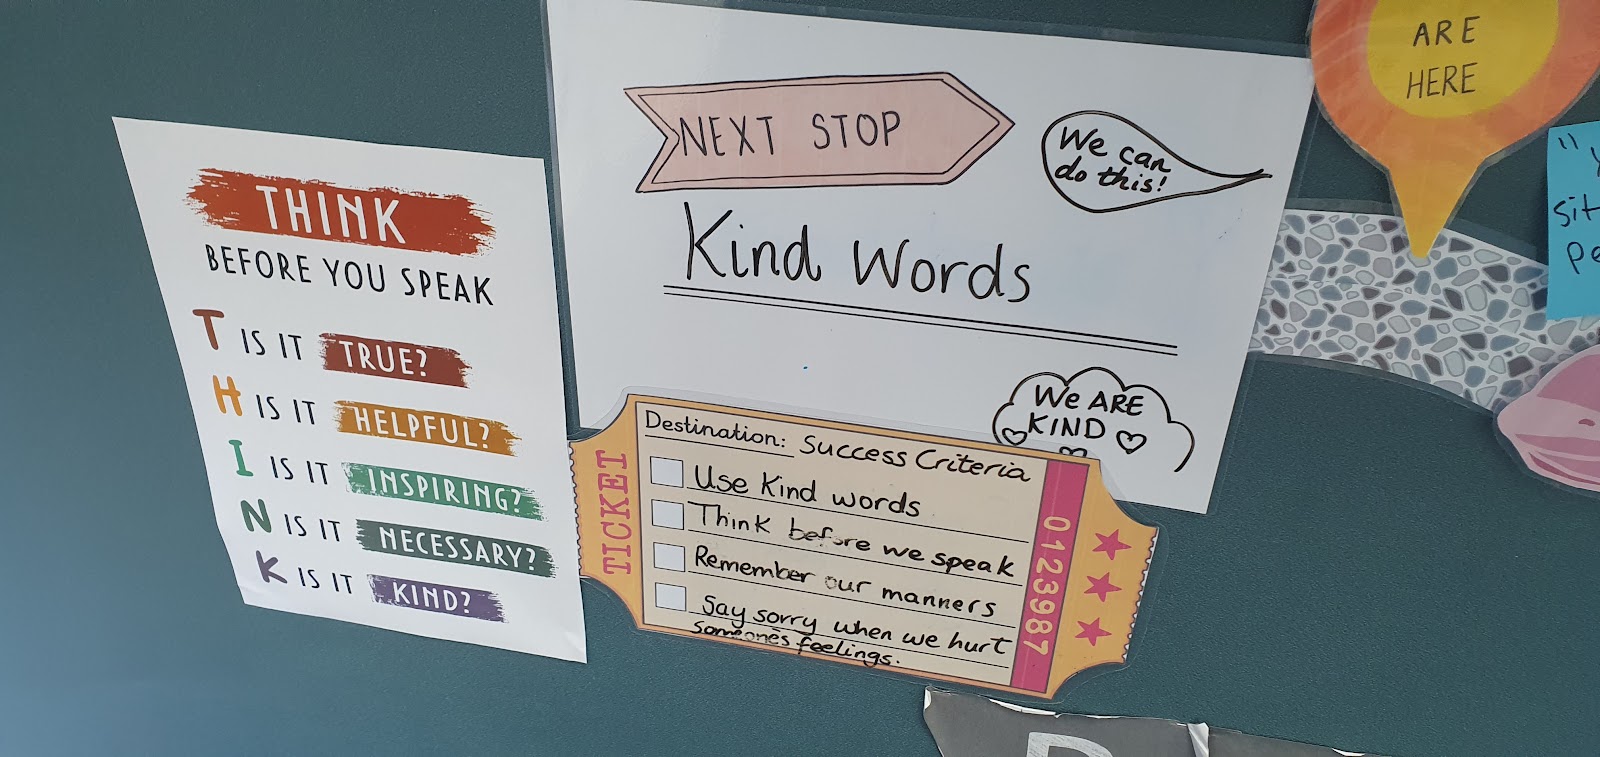 THINK
BEFORE YOU SPEAK
T IS IT TRUE?
H IS IT HELPFUL?
I IS IT INSPIRING?
N IS IT NECESSARY?
K IS IT KIND?
NEXT STOP
We can
do this!
Kind Words
We ARE
KIND
TICKET
Destination: Success Criteria
Use Kind words
Think before we speak
Remember our manners
Say sorry when we hurt
someone's feelings.
0123987
ARE
HERE